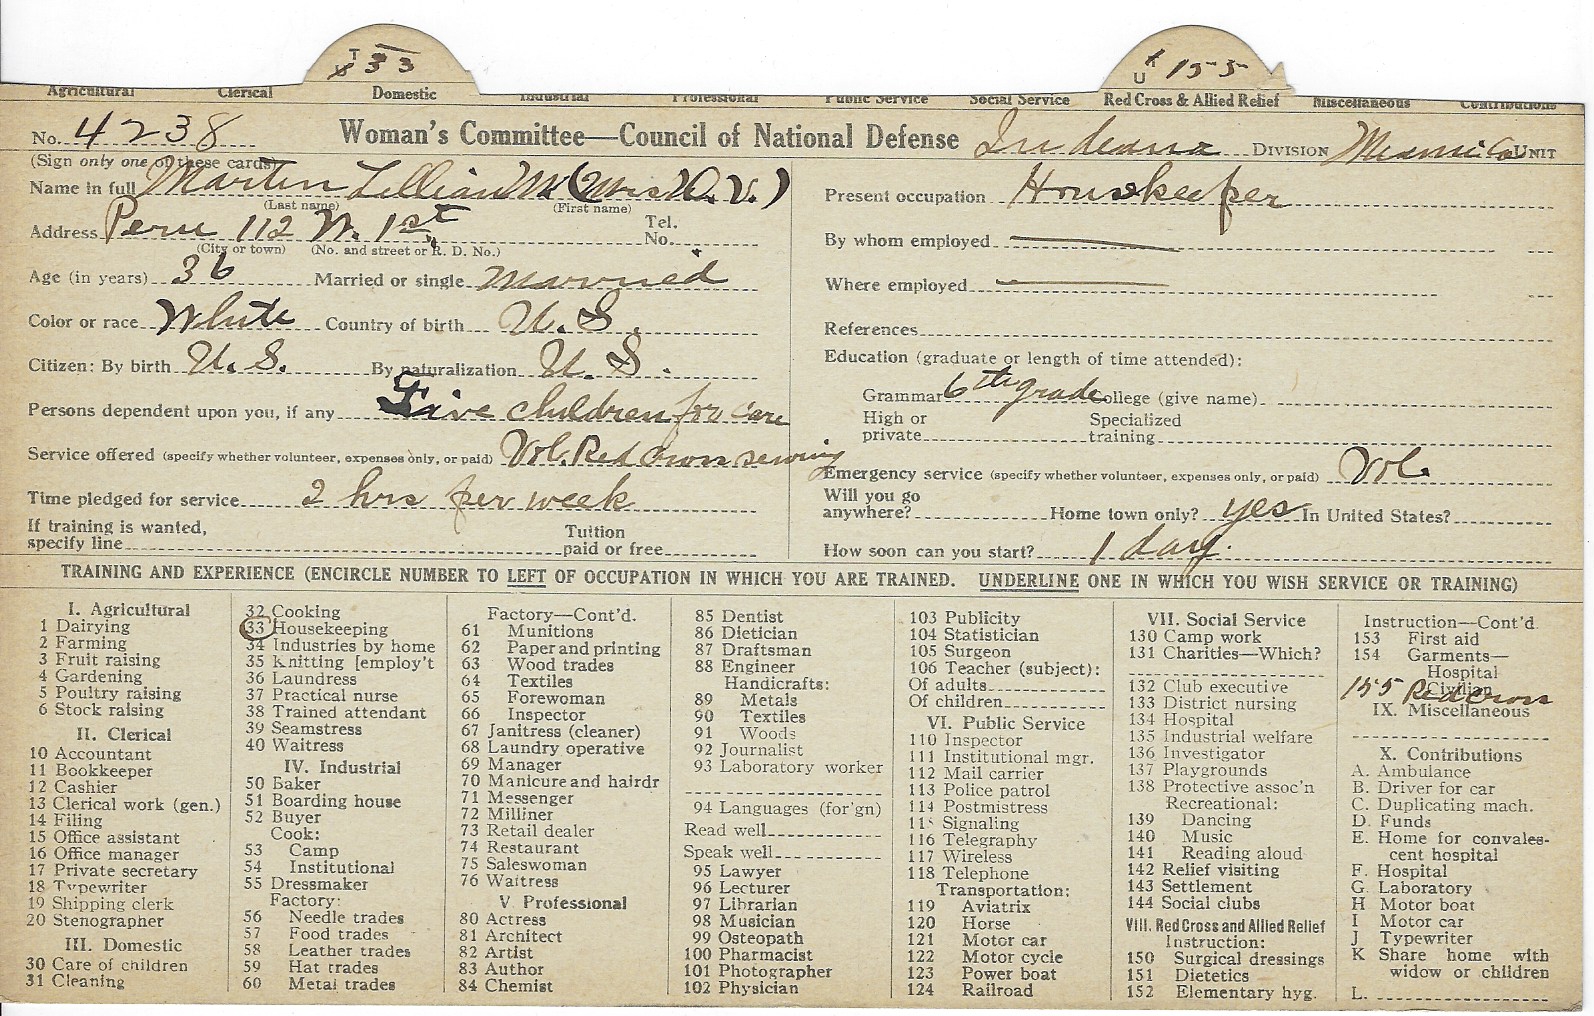 T 33
U
U 155
Agricultural Clerical Domestic Industrial Professional Public Service Social Service Red Cross & Allied Relief Miscellaneous Contributions
No. 4238 Woman's Committee—Council of National Defense Indiana DIVISION Miami Co UNIT
(Sign only one of these cards)
Name in full Martin Lillian M (Mrs O. V.)
(Last name) (First name)
Address Peru 112 W. 1st Tel. No.
(City or town) (No. and street or R. D. No.)
Age (in years) 36 Married or single Married
Color or race White Country of birth U. S.
Citizen: By birth U. S. By naturalization U. S.
Persons dependent upon you, if any Five children for care
Service offered (specify whether volunteer, expenses only, or paid) Vol. Red Cross sewing
Time pledged for service 2 hrs per week
If training is wanted,
specify line Tuition paid or free
Present occupation Housekeeper
By whom employed
Where employed
References
Education (graduate or length of time attended):
Grammar 6th grade College (give name)
High or private Specialized training
Emergency service (specify whether volunteer, expenses only, or paid) Vol.
Will you go anywhere? Home town only? yes In United States?
How soon can you start? 1 day.
TRAINING AND EXPERIENCE (ENCIRCLE NUMBER TO LEFT OF OCCUPATION IN WHICH YOU ARE TRAINED. UNDERLINE ONE IN WHICH YOU WISH SERVICE OR TRAINING)
I. Agricultural
1 Dairying
2 Farming
3 Fruit raising
4 Gardening
5 Poultry raising
6 Stock raising
II. Clerical
10 Accountant
11 Bookkeeper
12 Cashier
13 Clerical work (gen.)
14 Filing
15 Office assistant
16 Office manager
17 Private secretary
18 Typewriter
19 Shipping clerk
20 Stenographer
III. Domestic
30 Care of children
31 Cleaning
32 Cooking
33 Housekeeping
34 Industries by home
35 Knitting [employ't
36 Laundress
37 Practical nurse
38 Trained attendant
39 Seamstress
40 Waitress
IV. Industrial
50 Baker
51 Boarding house
52 Buyer
Cook:
53 Camp
54 Institutional
55 Dressmaker
Factory:
56 Needle trades
57 Food trades
58 Leather trades
59 Hat trades
60 Metal trades
Factory—Cont'd.
61 Munitions
62 Paper and printing
63 Wood trades
64 Textiles
65 Forewoman
66 Inspector
67 Janitress (cleaner)
68 Laundry operative
69 Manager
70 Manicure and hairdr
71 Messenger
72 Milliner
73 Retail dealer
74 Restaurant
75 Saleswoman
76 Waitress
V Professional
80 Actress
81 Architect
82 Artist
83 Author
84 Chemist
85 Dentist
86 Dietician
87 Draftsman
88 Engineer
Handicrafts:
89 Metals
90 Textiles
91 Woods
92 Journalist
93 Laboratory worker
94 Languages (for'gn)
Read well
Speak well
95 Lawyer
96 Lecturer
97 Librarian
98 Musician
99 Osteopath
100 Pharmacist
101 Photographer
102 Physician
103 Publicity
104 Statistician
105 Surgeon
106 Teacher (subject):
Of adults
Of children
VI. Public Service
110 Inspector
111 Institutional mgr.
112 Mail carrier
113 Police patrol
114 Postmistress
115 Signaling
116 Telegraphy
117 Wireless
118 Telephone
Transportation:
119 Aviatrix
120 Horse
121 Motor car
122 Motor cycle
123 Power boat
124 Railroad
VII. Social Service
130 Camp work
131 Charities—Which?
132 Club executive
133 District nursing
134 Hospital
135 Industrial welfare
136 Investigator
137 Playgrounds
138 Protective assoc'n
Recreational:
139 Dancing
140 Music
141 Reading aloud
142 Relief visiting
143 Settlement
144 Social clubs
VIII. Red Cross and Allied Relief
Instruction:
150 Surgical dressings
151 Dietetics
152 Elementary hyg.
Instruction—Cont'd
153 First aid
154 Garments—
Hospital
Civilian
155 Red Cross
IX. Miscellaneous
X. Contributions
A. Ambulance
B. Driver for car
C. Duplicating mach.
D. Funds
E. Home for convales-
cent hospital
F. Hospital
G. Laboratory
H Motor boat
I Motor car
J Typewriter
K Share home with
widow or children
L.